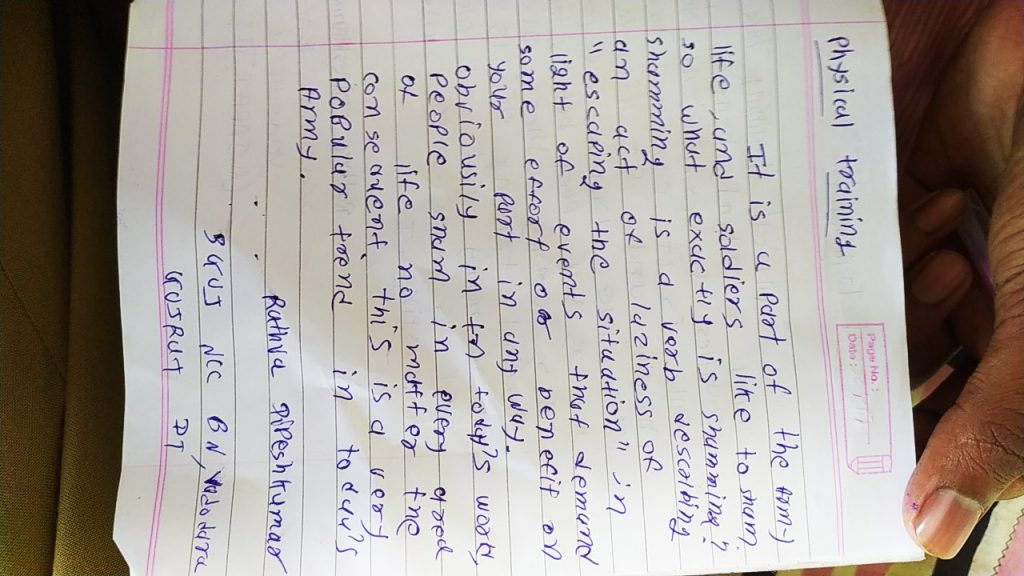 Page No.:
Date:
Physical training
It is a part of the Army
life, and soldiers like to sham.
so what exactly is shamming?
shamming is a verb describing
an act of laziness of
"escaping the situation" in
light of events that demand
some effort or benefit on
your part in any way.
obviously in today's world,
people sham in every area
of life no matter the
consequent, this is a very
popular trend in today's
Army.
Rathva Dipeshkumar
3 GUJ NCC BN, Vadodara
GUJRUT DT